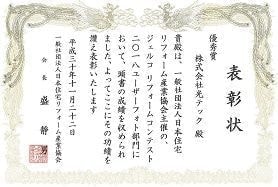 表彰状
優秀賞
株式会社光テック 殿
貴殿は、一般社団法人日本住宅
リフォーム産業協会主催の、
ジェルコ リフォームコンテスト
二〇一八 ユーザーフォト部門に
おいて、頭書の成績を収められ
ました、よってここにその功績を
讃え表彰いたします
平成三十年十一月二十二日
一般社団法人日本住宅リフォーム産業協会
会長 盛 静男